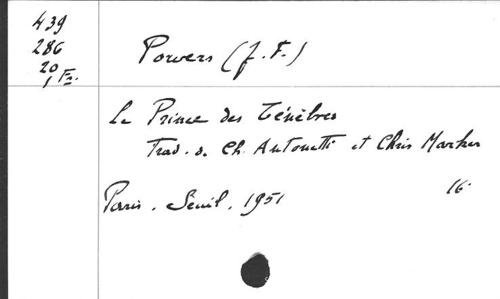 439
286
20
1 Fr.
Powers (J. F.)
Le Prince des Ténèbres
Trad. d. Ch. Antonetti et Chris Marker
Paris. Seuil. 1951
16.